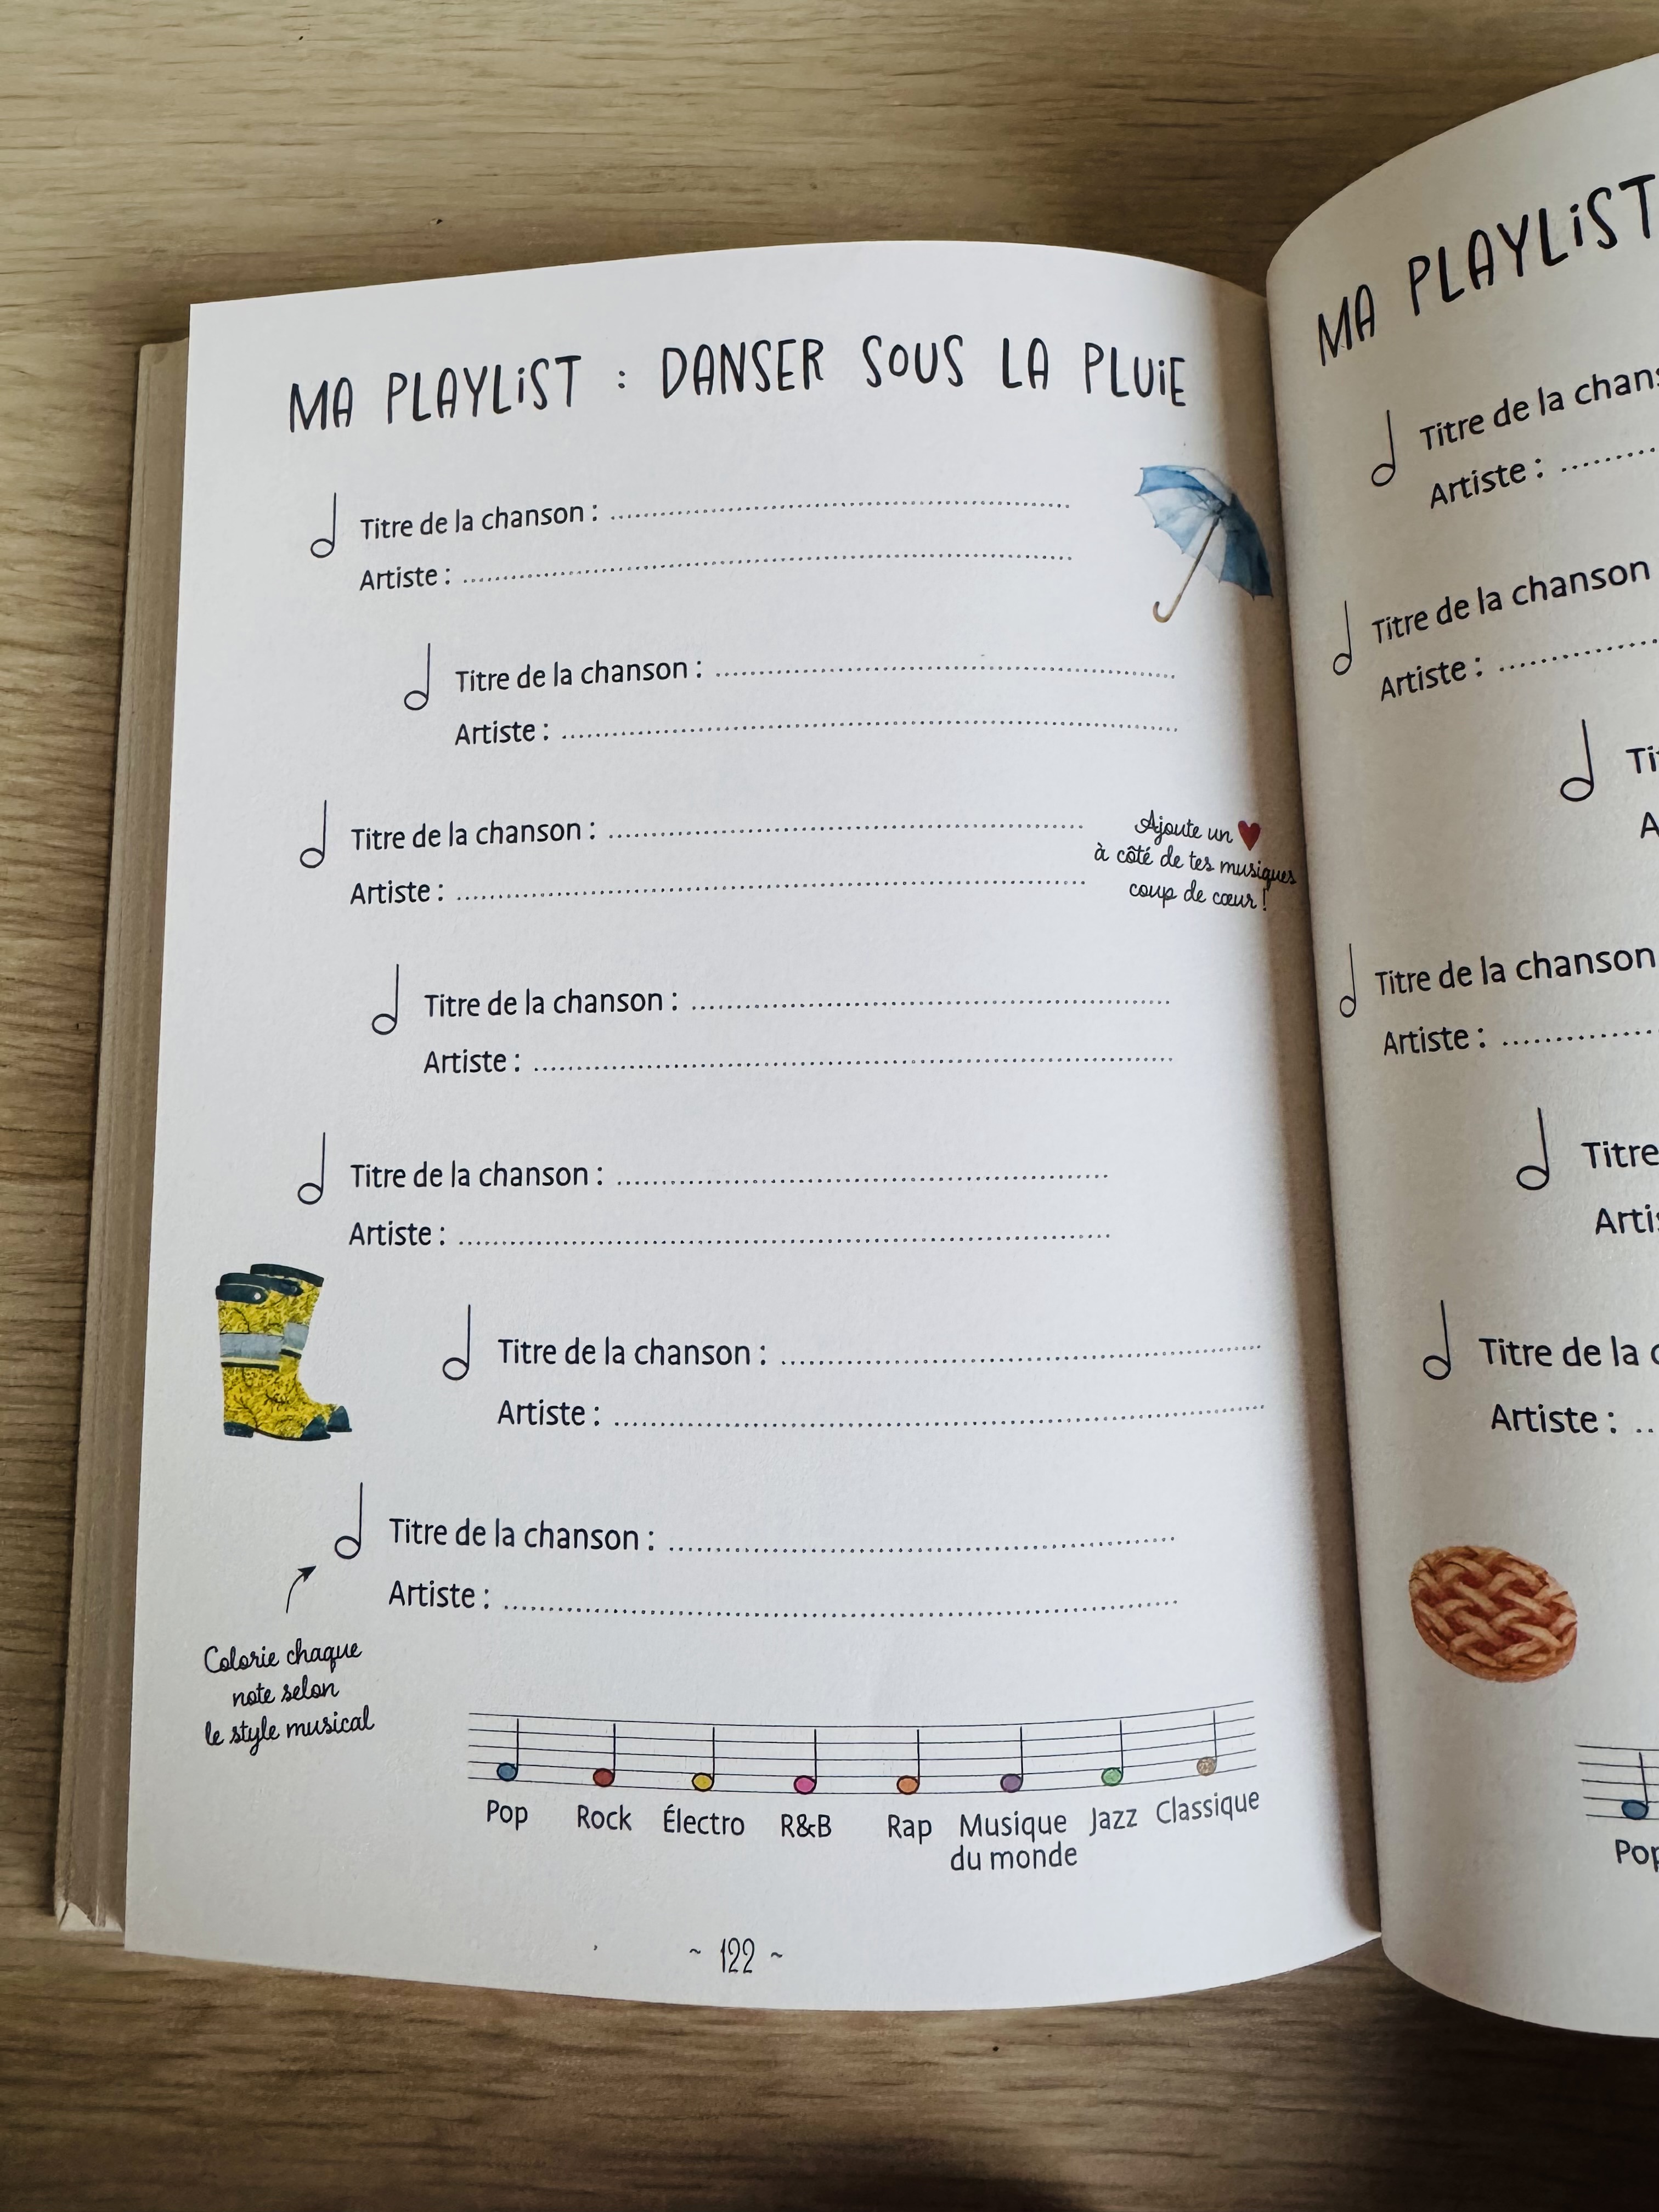 MA PLAYLiST : DANSER SOUS LA PLUiE
Titre de la chanson :
Artiste :
Titre de la chanson :
Artiste :
Titre de la chanson :
Artiste :
Ajoute un ♥
à côté de tes musiques
coup de cœur !
Titre de la chanson :
Artiste :
Titre de la chanson :
Artiste :
Titre de la chanson :
Artiste :
Titre de la chanson :
Artiste :
Colorie chaque
note selon
le style musical
Pop Rock Électro R&B Rap Musique du monde Jazz Classique
~ 122 ~
MA PLAYLiST
Titre de la chans
Artiste :
Titre de la chanson
Artiste :
Tit
A
Titre de la chanson
Artiste :
Titre
Artis
Titre de la c
Artiste :
Pop